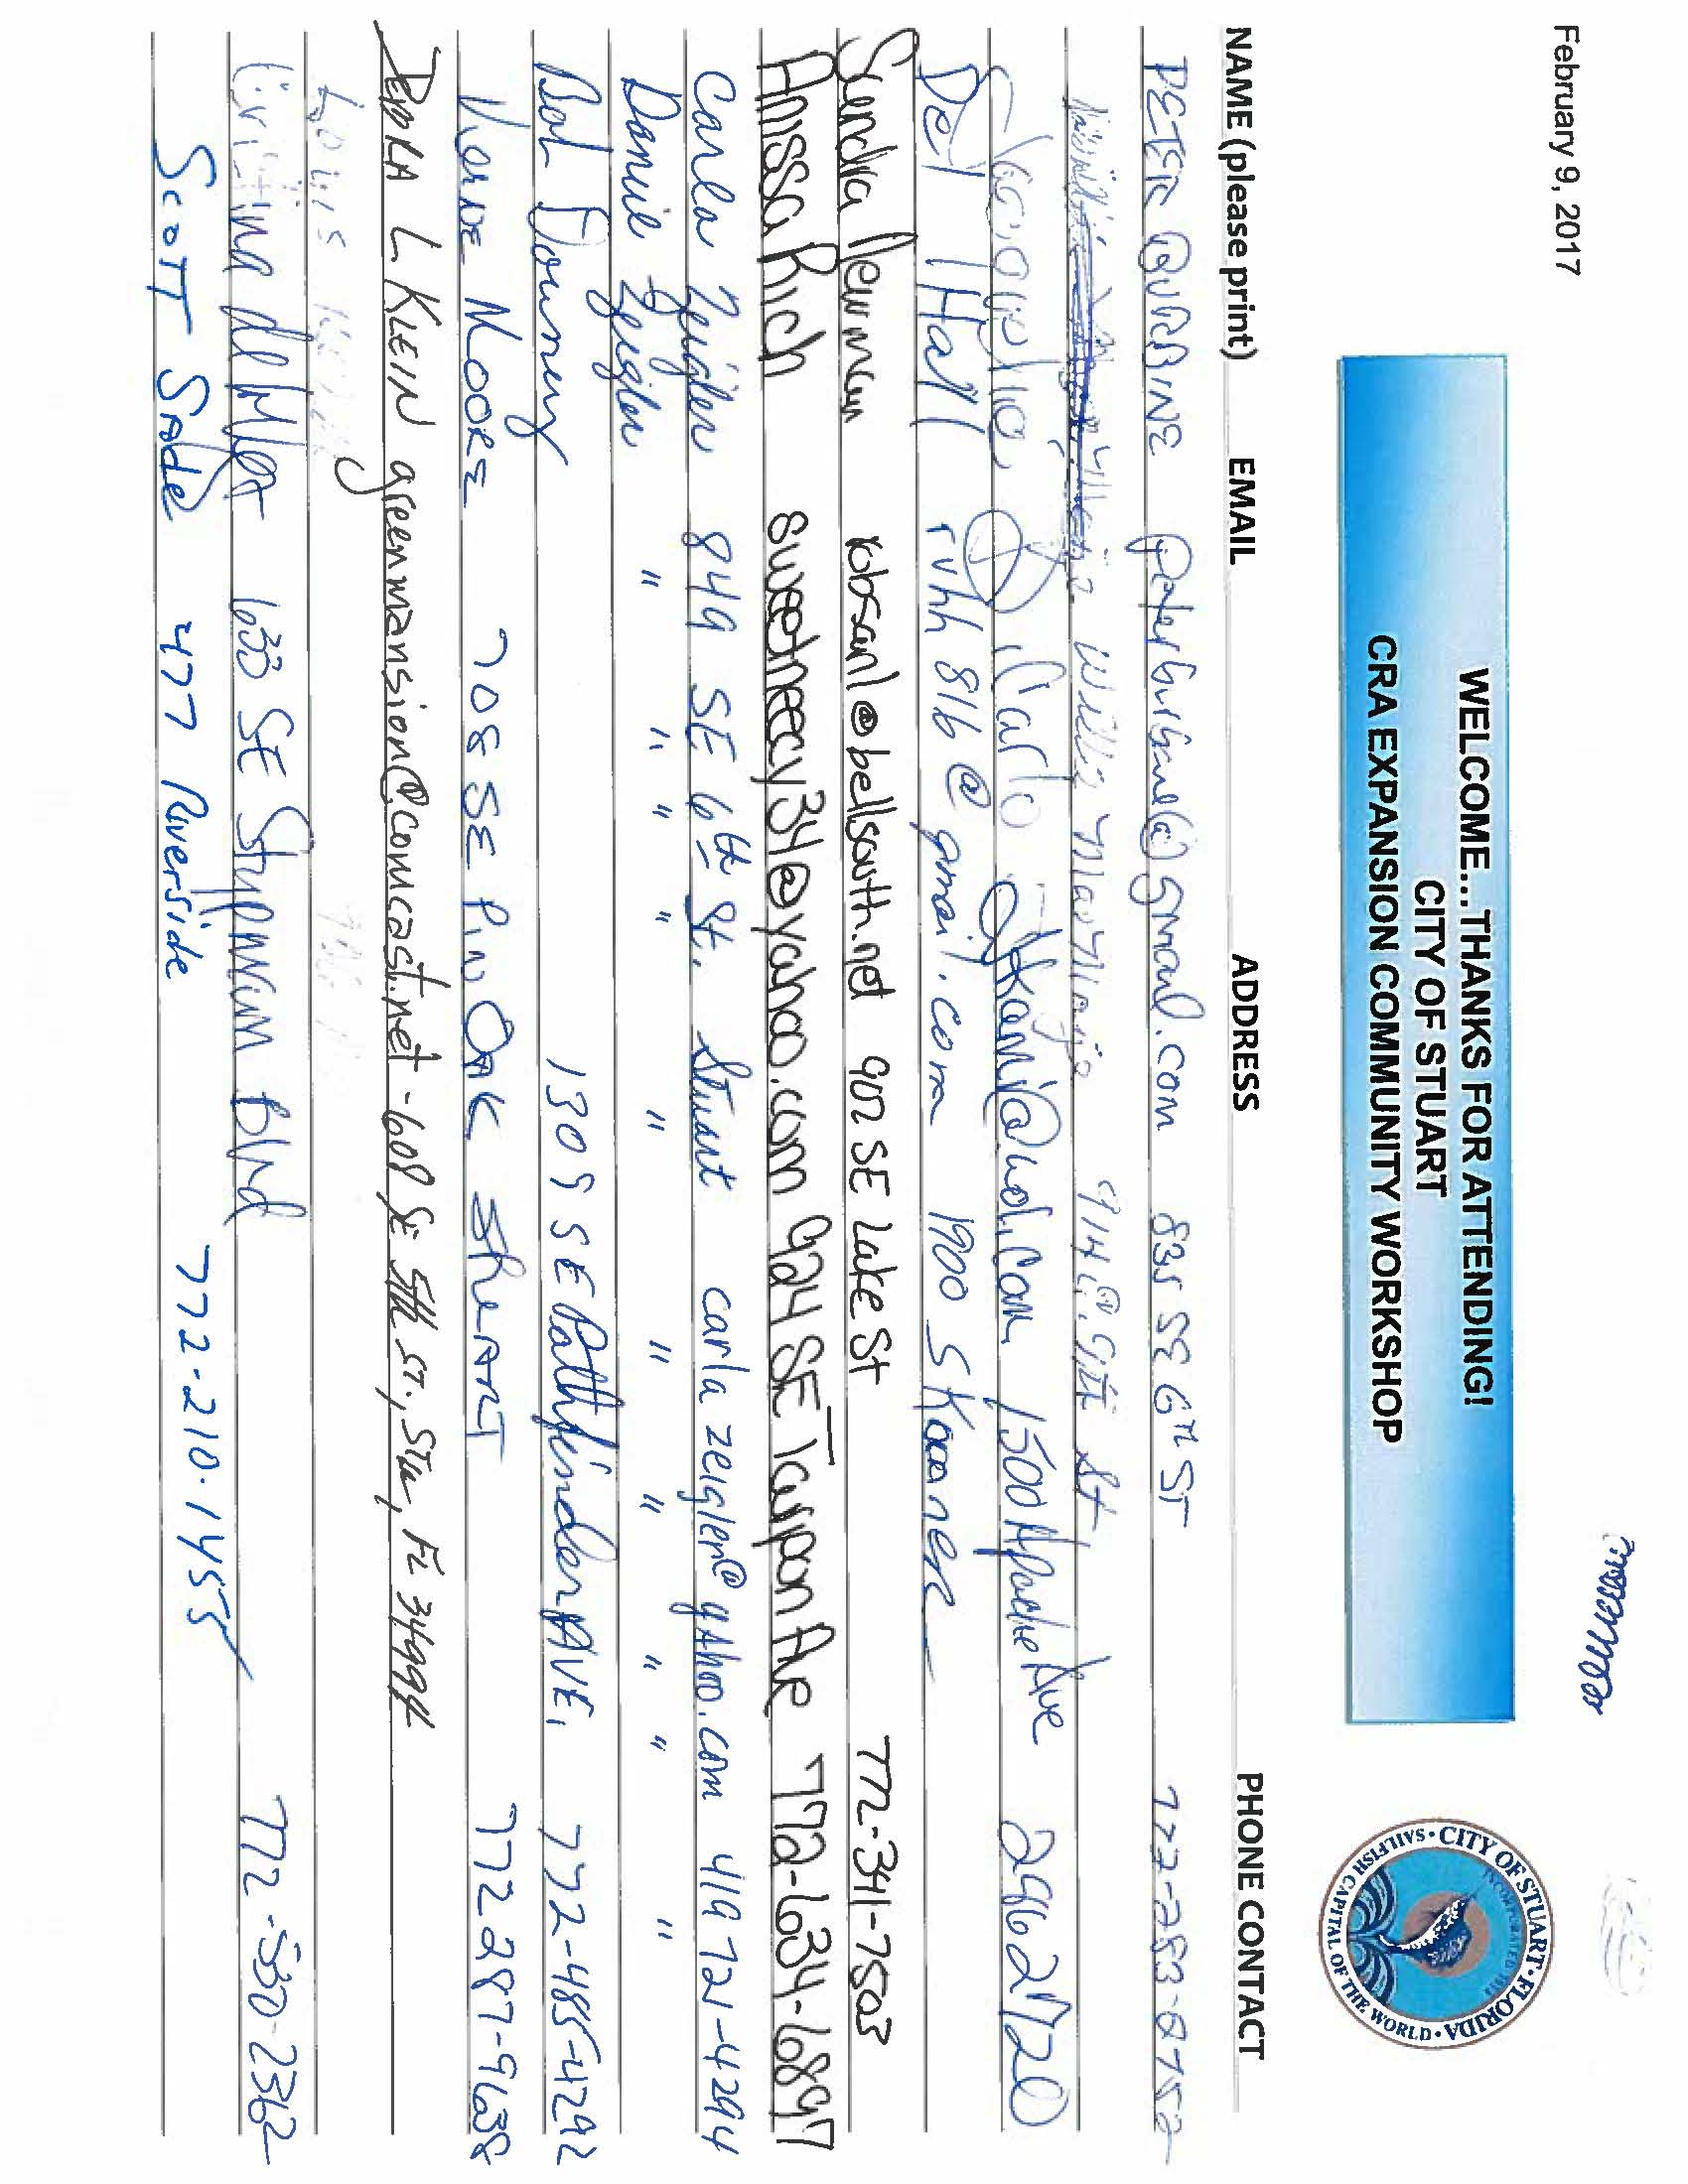 February 9, 2017
WELCOME...THANKS FOR ATTENDING!
CITY OF STUART
CRA EXPANSION COMMUNITY WORKSHOP
CITY OF STUART • FLORIDA • SAILFISH CAPITAL OF THE WORLD •
INCORPORATED 1914
NAME (please print) EMAIL ADDRESS PHONE CONTACT
PETER BURBINE peterburbine@gmail.com 835 SE 6TH ST 772-283-0752
Willie 914 St
Di Carlo 1500 Apache Ave 2862720
Del Hall rvhh816@gmail.com 1900 S Kanner
Sendra Newman robsanl@bellsouth.net 902 SE Lake St 772-341-7503
Anissa Rich sweetneecy34@yahoo.com 924 SE Tarpon Ave 772-634-6897
Carla Zeigler 849 SE 6th St. Stuart carlazeigler@yahoo.com 419 721-4294
Daniel Zeigler " " " " " " " " " "
Bob Downey 1309 SE Pathfinder AVE, 772-485-4292
Verne Moore 708 SE Pin Oak Stuart 772 287-9638
Debra L Klein greenmansion@comcast.net - 608 SE 5th ST., Stu, FL 34994
Louis
633 SE Stypmann blvd 772-530-2362
Scott Sade 477 Riverside 772-210-1455